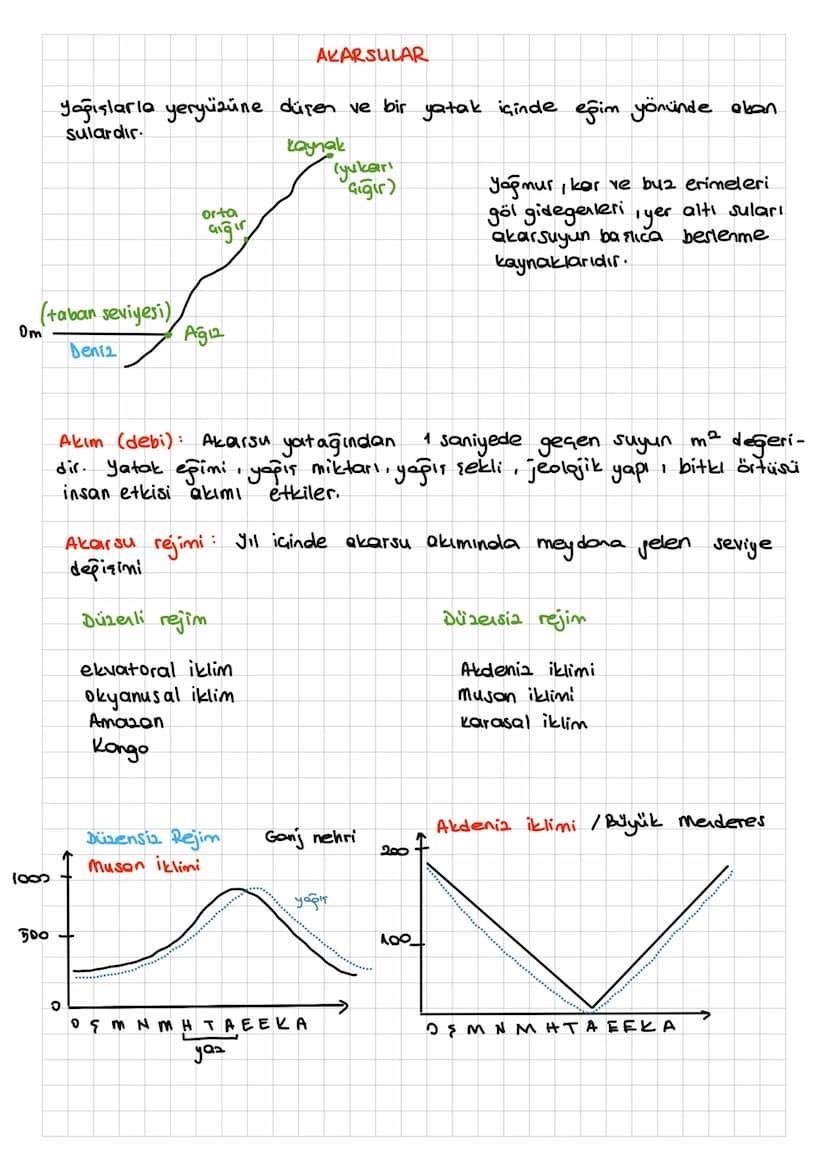 AKARSULAR
Yağışlarla yeryüzüne düşen ve bir yatak içinde eğim yönünde akan
sulardır.
Kaynak
(yukarı
çığır)
orta
çığır
(taban seviyesi)
0m
Ağız
Deniz
Yağmur, kar ve buz erimeleri
göl gidegenleri, yer altı suları
akarsuyun başlıca beslenme
kaynaklarıdır.
Akım (debi): Akarsu yatağından 1 saniyede geçen suyun m² değeri-
dir. Yatak eğimi, yağış miktarı, yağış şekli, jeolojik yapı, bitki örtüsü
insan etkisi akımı etkiler.
Akarsu rejimi: Yıl içinde akarsu akımında meydana gelen seviye
değişimi
Düzenli rejim
ekvatoral iklim
okyanusal iklim
Amazon
Kongo
Düzensiz rejim
Akdeniz iklimi
Muson iklimi
Karasal iklim
Düzensiz Rejim
Ganj nehri
Muson iklimi
1000
500
0
yağış
O Ş M N M H T A E E K A
yaz
Akdeniz iklimi / Büyük Menderes
200
100
O Ş M N M H T A E E K A